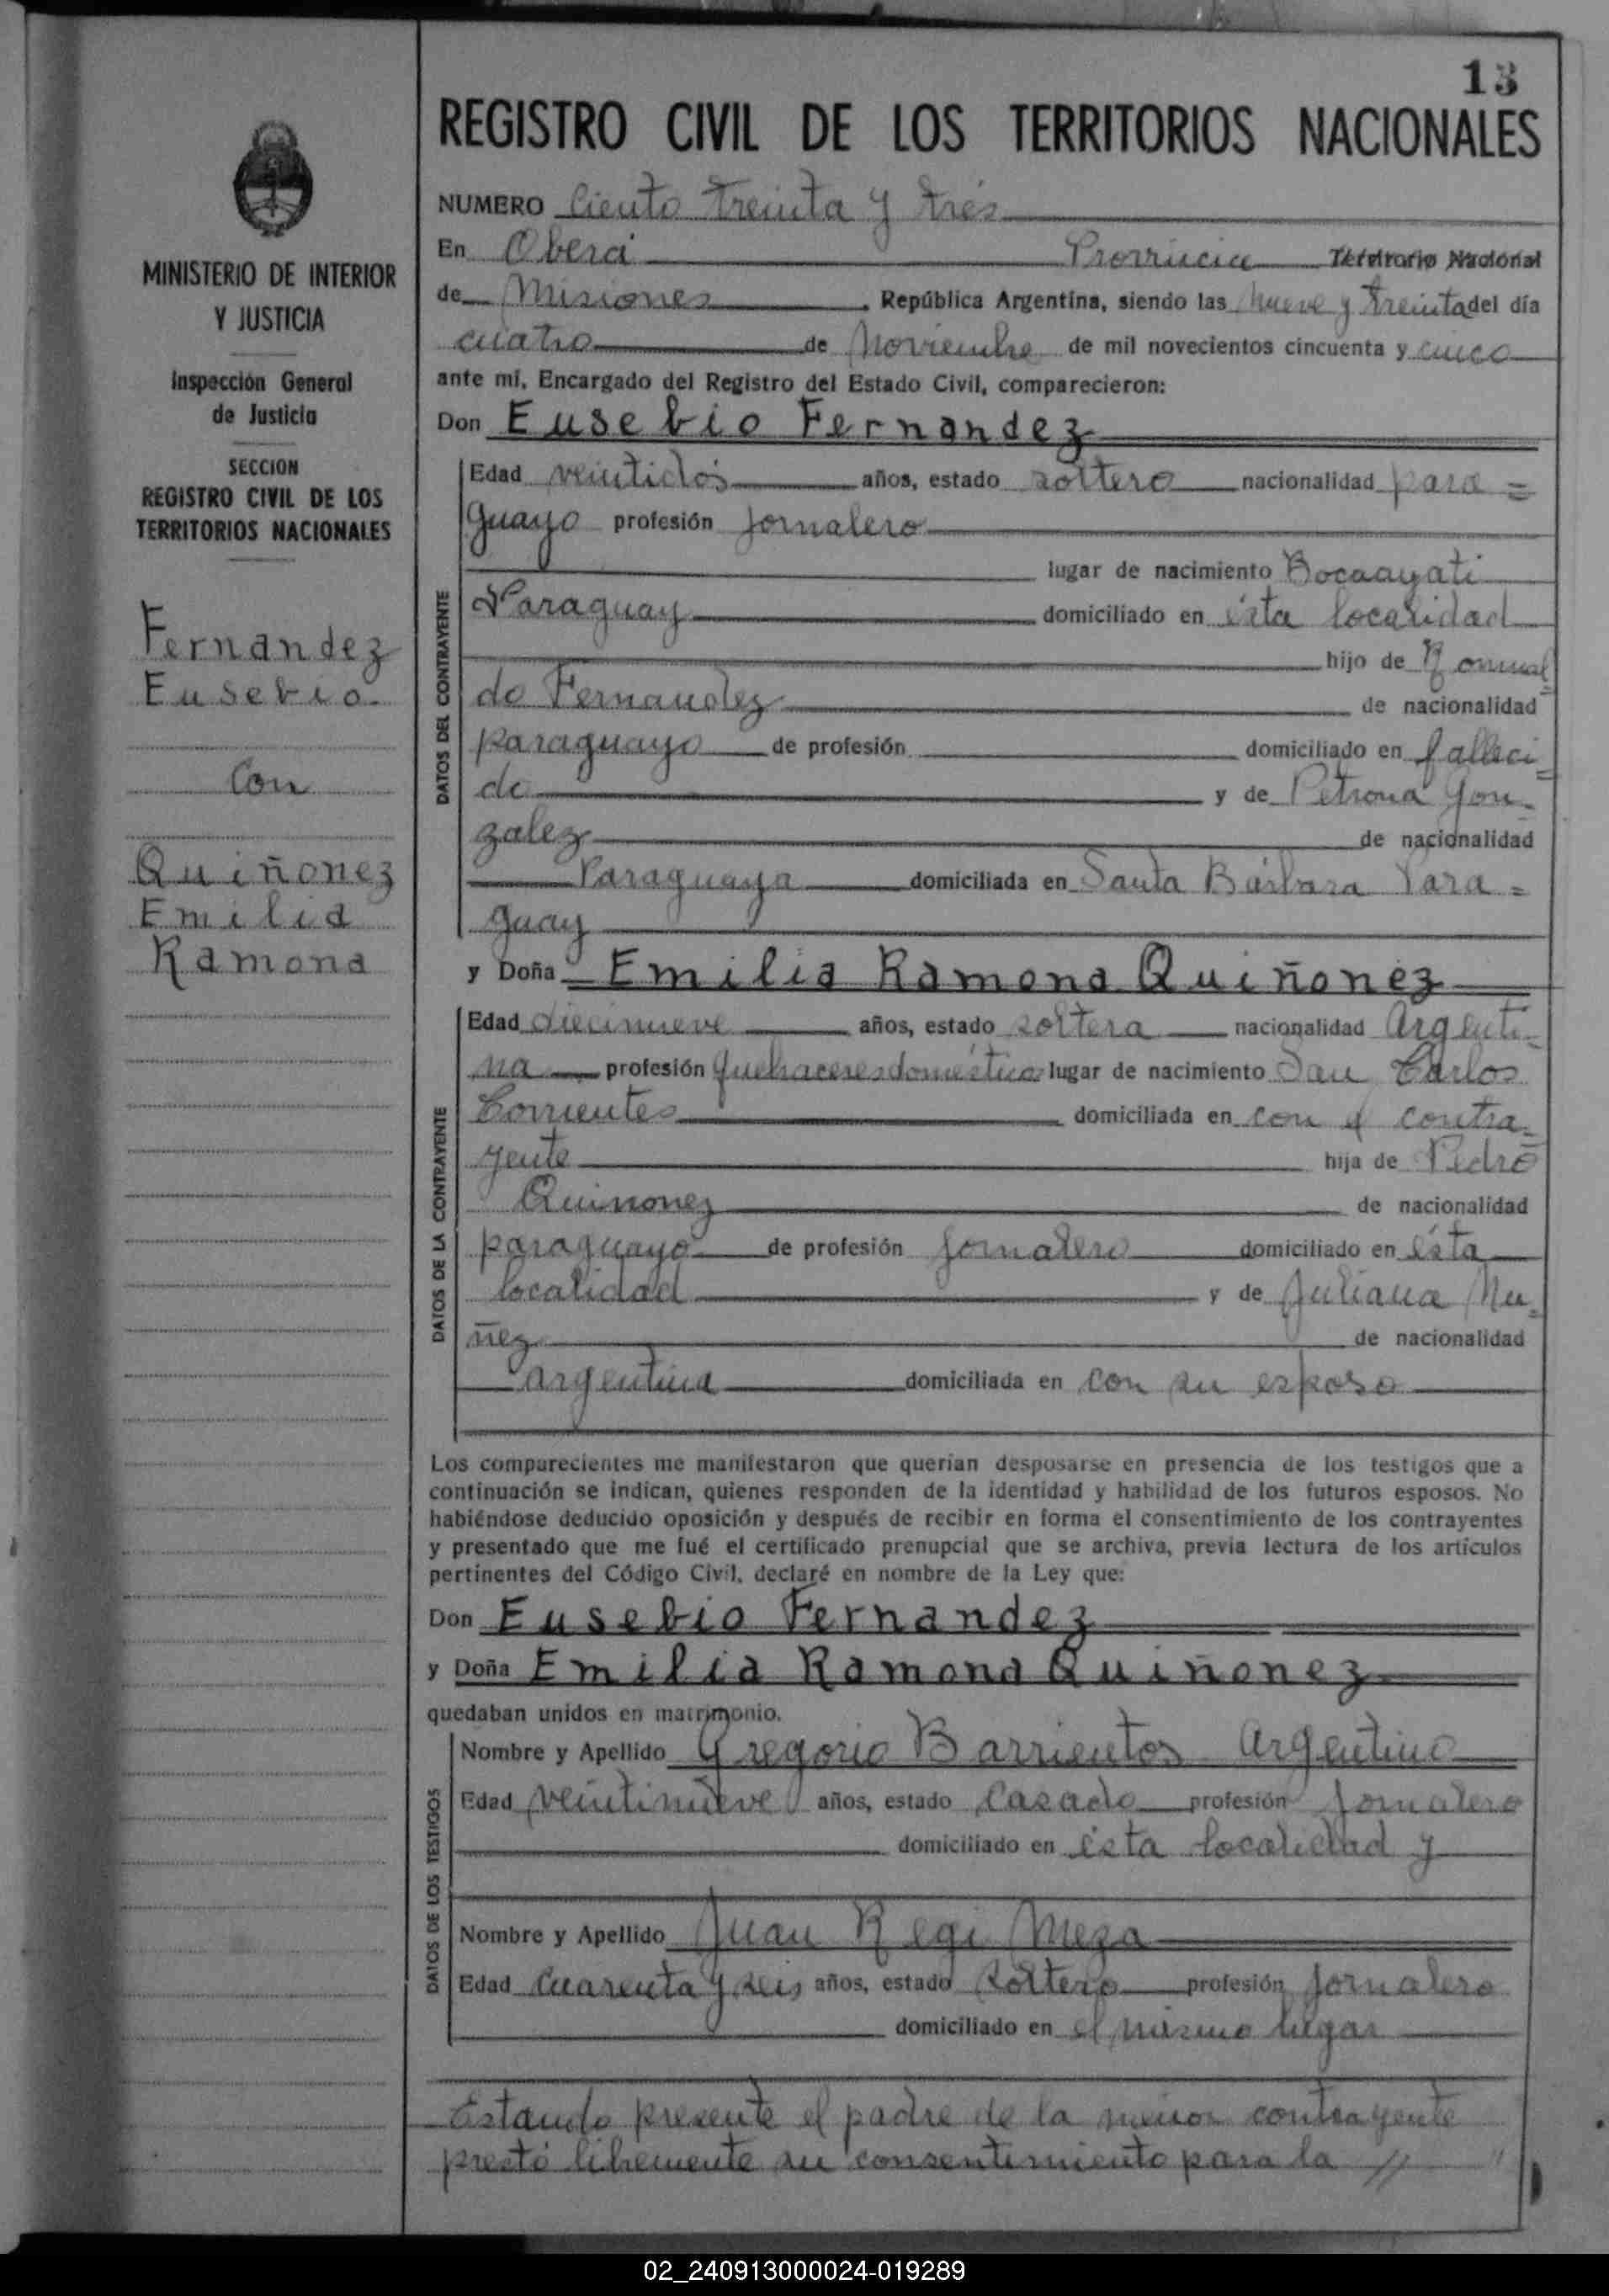 13
REGISTRO CIVIL DE LOS TERRITORIOS NACIONALES
MINISTERIO DE INTERIOR
Y JUSTICIA
Inspección General
de Justicia
SECCION
REGISTRO CIVIL DE LOS
TERRITORIOS NACIONALES
Fernandez
Eusebio
Con
Quiñonez
Emilia
Ramona
NUMERO Ciento treinta y tres
En Oberá Provincia Territorio Nacional
de Misiones, República Argentina, siendo las nueve y treinta del día
cuatro de Noviembre de mil novecientos cincuenta y cinco
ante mí, Encargado del Registro del Estado Civil, comparecieron:
Don Eusebio Fernandez
DATOS DEL CONTRAYENTE
Edad veintidós años, estado soltero nacionalidad para=
guayo profesión Jornalero
lugar de nacimiento Bocaayati
Paraguay domiciliado en ésta localidad
hijo de Romual=
do Fernandez de nacionalidad
paraguayo de profesión domiciliado en falleci=
do y de Petrona Gon=
zalez de nacionalidad
Paraguaya domiciliada en Santa Bárbara Para=
guay
y Doña Emilia Ramona Quiñonez
DATOS DE LA CONTRAYENTE
Edad diecinueve años, estado soltera nacionalidad Argenti=
na profesión quehaceres domésticos lugar de nacimiento San Carlos
Corrientes domiciliada en con el contra=
yente hija de Pedro
Quinonez de nacionalidad
paraguayo de profesión jornalero domiciliado en ésta
localidad y de Juliana Nu=
ñez de nacionalidad
argentina domiciliada en con su esposo
Los comparecientes me manifestaron que querían desposarse en presencia de los testigos que a
continuación se indican, quienes responden de la identidad y habilidad de los futuros esposos. No
habiéndose deducido oposición y después de recibir en forma el consentimiento de los contrayentes
y presentado que me fué el certificado prenupcial que se archiva, previa lectura de los artículos
pertinentes del Código Civil, declaré en nombre de la Ley que:
Don Eusebio Fernandez
y Doña Emilia Ramona Quiñonez
quedaban unidos en matrimonio.
DATOS DE LOS TESTIGOS
Nombre y Apellido Gregorio Barrientos Argentino
Edad veintinueve años, estado Casado profesión Jornalero
domiciliado en ésta localidad y
Nombre y Apellido Juan Regi Meza
Edad cuarenta y seis años, estado soltero profesión jornalero
domiciliado en el mismo lugar
Estando presente el padre de la menor contrayente
prestó libremente su consentimiento para la //
02_240913000024-019289